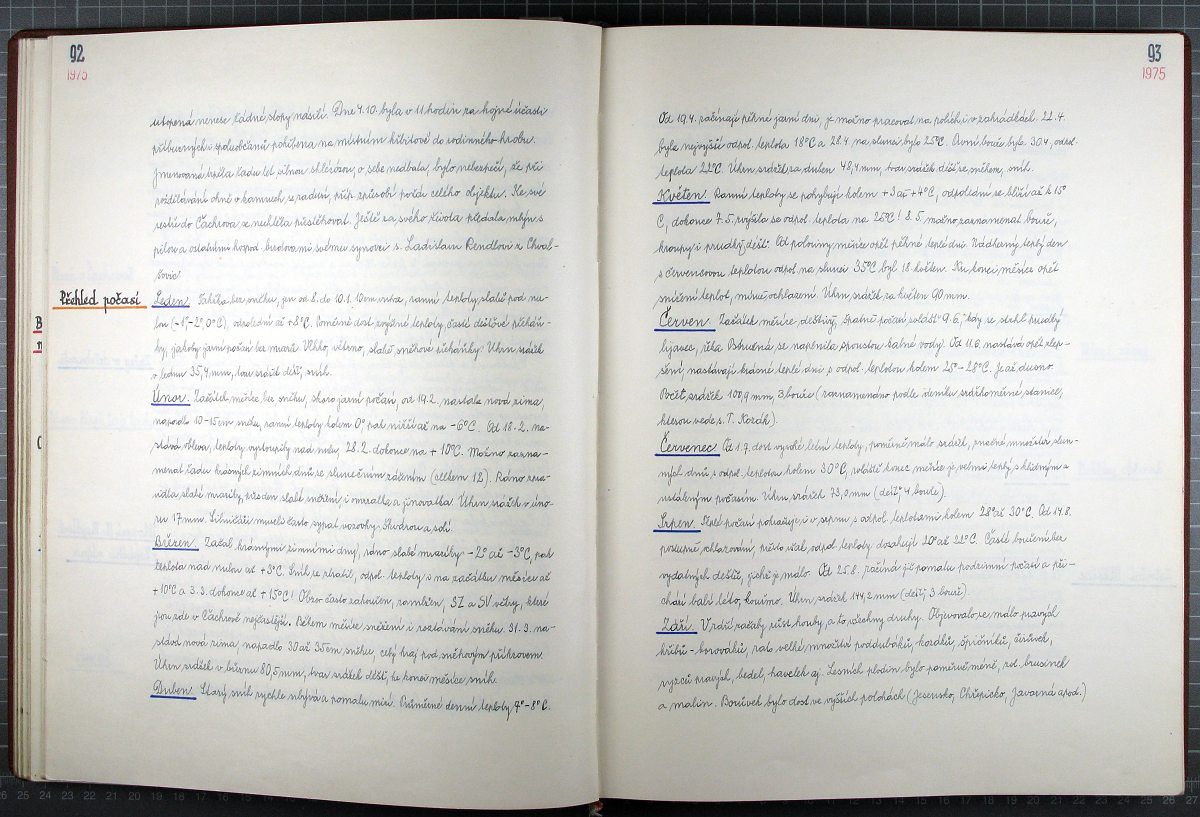 92
1975
utopená nenese žádné stopy násilí. Dne 4.10. byla v 11 hodin za hojné účasti
příbuzných a spoluobčanů pohřbena na místním hřbitově do rodinného hrobu.
Jmenovaná trpěla řadu let silnou sklerózou, o sebe nedbala, bylo nebezpečí, že při
rozdělávání ohně v kamnech se zadusí, příp. způsobí požár celého objektu. Ke své
sestře do Čachrova se nechtěla přestěhovat. Ještě za svého života předala mlýn s
pilou a ostatními hospod. budovami svému synovci s. Ladislavu Rendlovi z Chval-
šovic
Přehled počasí
Leden. Takřka bez sněhu, jen od 8. do 10.1. 10 cm vrstva, ranní teploty slabě pod nu-
lou (-1°, -2°, 0°C), odpolední až +8°C. Poměrně dost zvýšené teploty, časté dešťové přeháň-
ky, jakoby jarní počasí bez mrazů. Vlhko, větrno, slabé sněhové přeháňky. Úhrn srážek
v lednu 35,4 mm, tvar srážek déšť, sníh.
Únor. Začátek měsíce bez sněhu, skoro jarní počasí, od 19.2. nastala nová zima,
napadlo 10-15 cm sněhu, ranní teploty kolem 0° pak nižší až na -6°C. Od 18.2. na-
stává obleva, teploty vystoupily nad nulu, 28.2. dokonce na +10°C. Možno zazna-
menat řadu krásných zimních dnů se slunečním zářením (celkem 12). Ráno zpra-
vidla slabé mrazíky, přes den slabé sněžení, i omrzalka a jinovatka. Úhrn srážek v úno-
ru 17 mm. Silničáři museli často sypat vozovky škvárou a solí.
Březen. Začal krásnými zimními dny, ráno slabé mrazíky -2° až -3°C, pak
teplota nad nulou až +3°C. Sníh se ztratil, odpol. teploty s na začátku měsíce až
+10°C a 3.3. dokonce až +15°C! Obzor často zakouřen, zamlžen, SZ a SV větry, které
jsou zde v Čachrově nejčastější. Během měsíce sněžení i roztávání sněhu. 31.3. na-
stává nová zima, napadlo 30 až 35 cm sněhu, celý kraj pod sněhovým příkrovem.
Úhrn srážek v březnu 80,5 mm, tvar srážek déšť, ke konci měsíce sníh.
Duben. Starý sníh rychle ubývá a pomalu mizí. Průměrné denní teploty 4°-8°C.
93
1975
Od 19.4. začínají pěkné jarní dni, je možno pracovat na polích, i v zahrádkách. 22.4.
byla nejvyšší odpol. teplota 18°C a 28.4. na slunci bylo 25°C. První bouře byla 30.4., odpol.
teplota 22°C. Úhrn srážek za duben 48,4 mm, tvar srážek déšť se sněhem, sníh.
Květen. Ranní teploty se pohybují kolem +3 až +4°C, odpolední se blíží až k 15°
C, dokonce 7.5. zvýšila se odpol. teplota na 25°C! 8.5. možno zaznamenat bouře,
kroupy i prudký déšť. Od poloviny měsíce opět pěkné teplé dni. Nádherný, teplý den
s červencovou teplotou odpol. na slunci 35°C byl 18. květen. Ku konci měsíce opět
snížení teplot, mírné ochlazení. Úhrn srážek za květen 90 mm.
Červen. Začátek měsíce deštivý, špatné počasí zvláště 9.6., kdy se strhl prudký
lijavec, říčka Ostružná se naplnila spoustou kalné vody. Od 11.6. nastává opět zlep-
šení, nastávají krásné teplé dni s odpol. teplotou kolem 25°-28°C. Je až dusno.
Počet srážek 100,9 mm, 3 bouře (zaznamenáno podle deníku srážkoměrné stanice,
kterou vede s. T. Kozák).
Červenec. Od 1.7. dost vysoké letní teploty, poměrně málo srážek, značné množství slun-
ných dnů s odpol. teplotou kolem 30°C, zvláště konec měsíce je velmi teplý s klidným a
ustáleným počasím. Úhrn srážek 73,0 mm (déšť, 4 bouře).
Srpen. Teplé počasí pokračuje i v srpnu s odpol. teplotami kolem 28° až 30°C. Od 14.8.
postupné ochlazování, přesto však odpol. teploty dosahují 20° až 22°C. Časté bouření bez
vydatných dešťů, jichž je málo. Od 25.8. začíná již pomalu podzimní počasí a při-
chází babí léto, kouřmo. Úhrn srážek 144,2 mm (déšť, 3 bouře).
Září. V září začaly růst houby, a to všechny druhy. Objevovalo se málo pravých
hřibů - borováků, zato velké množství poddubáků, kozáků, špičníků, čirůvek,
ryzců pravých, bedel, havelek aj. Lesních plodin bylo poměrně méně, zvl. brusinek
a malin. Borůvek bylo dost ve vyšších polohách (Jesensko, Chřepicko, Javorná apod.)